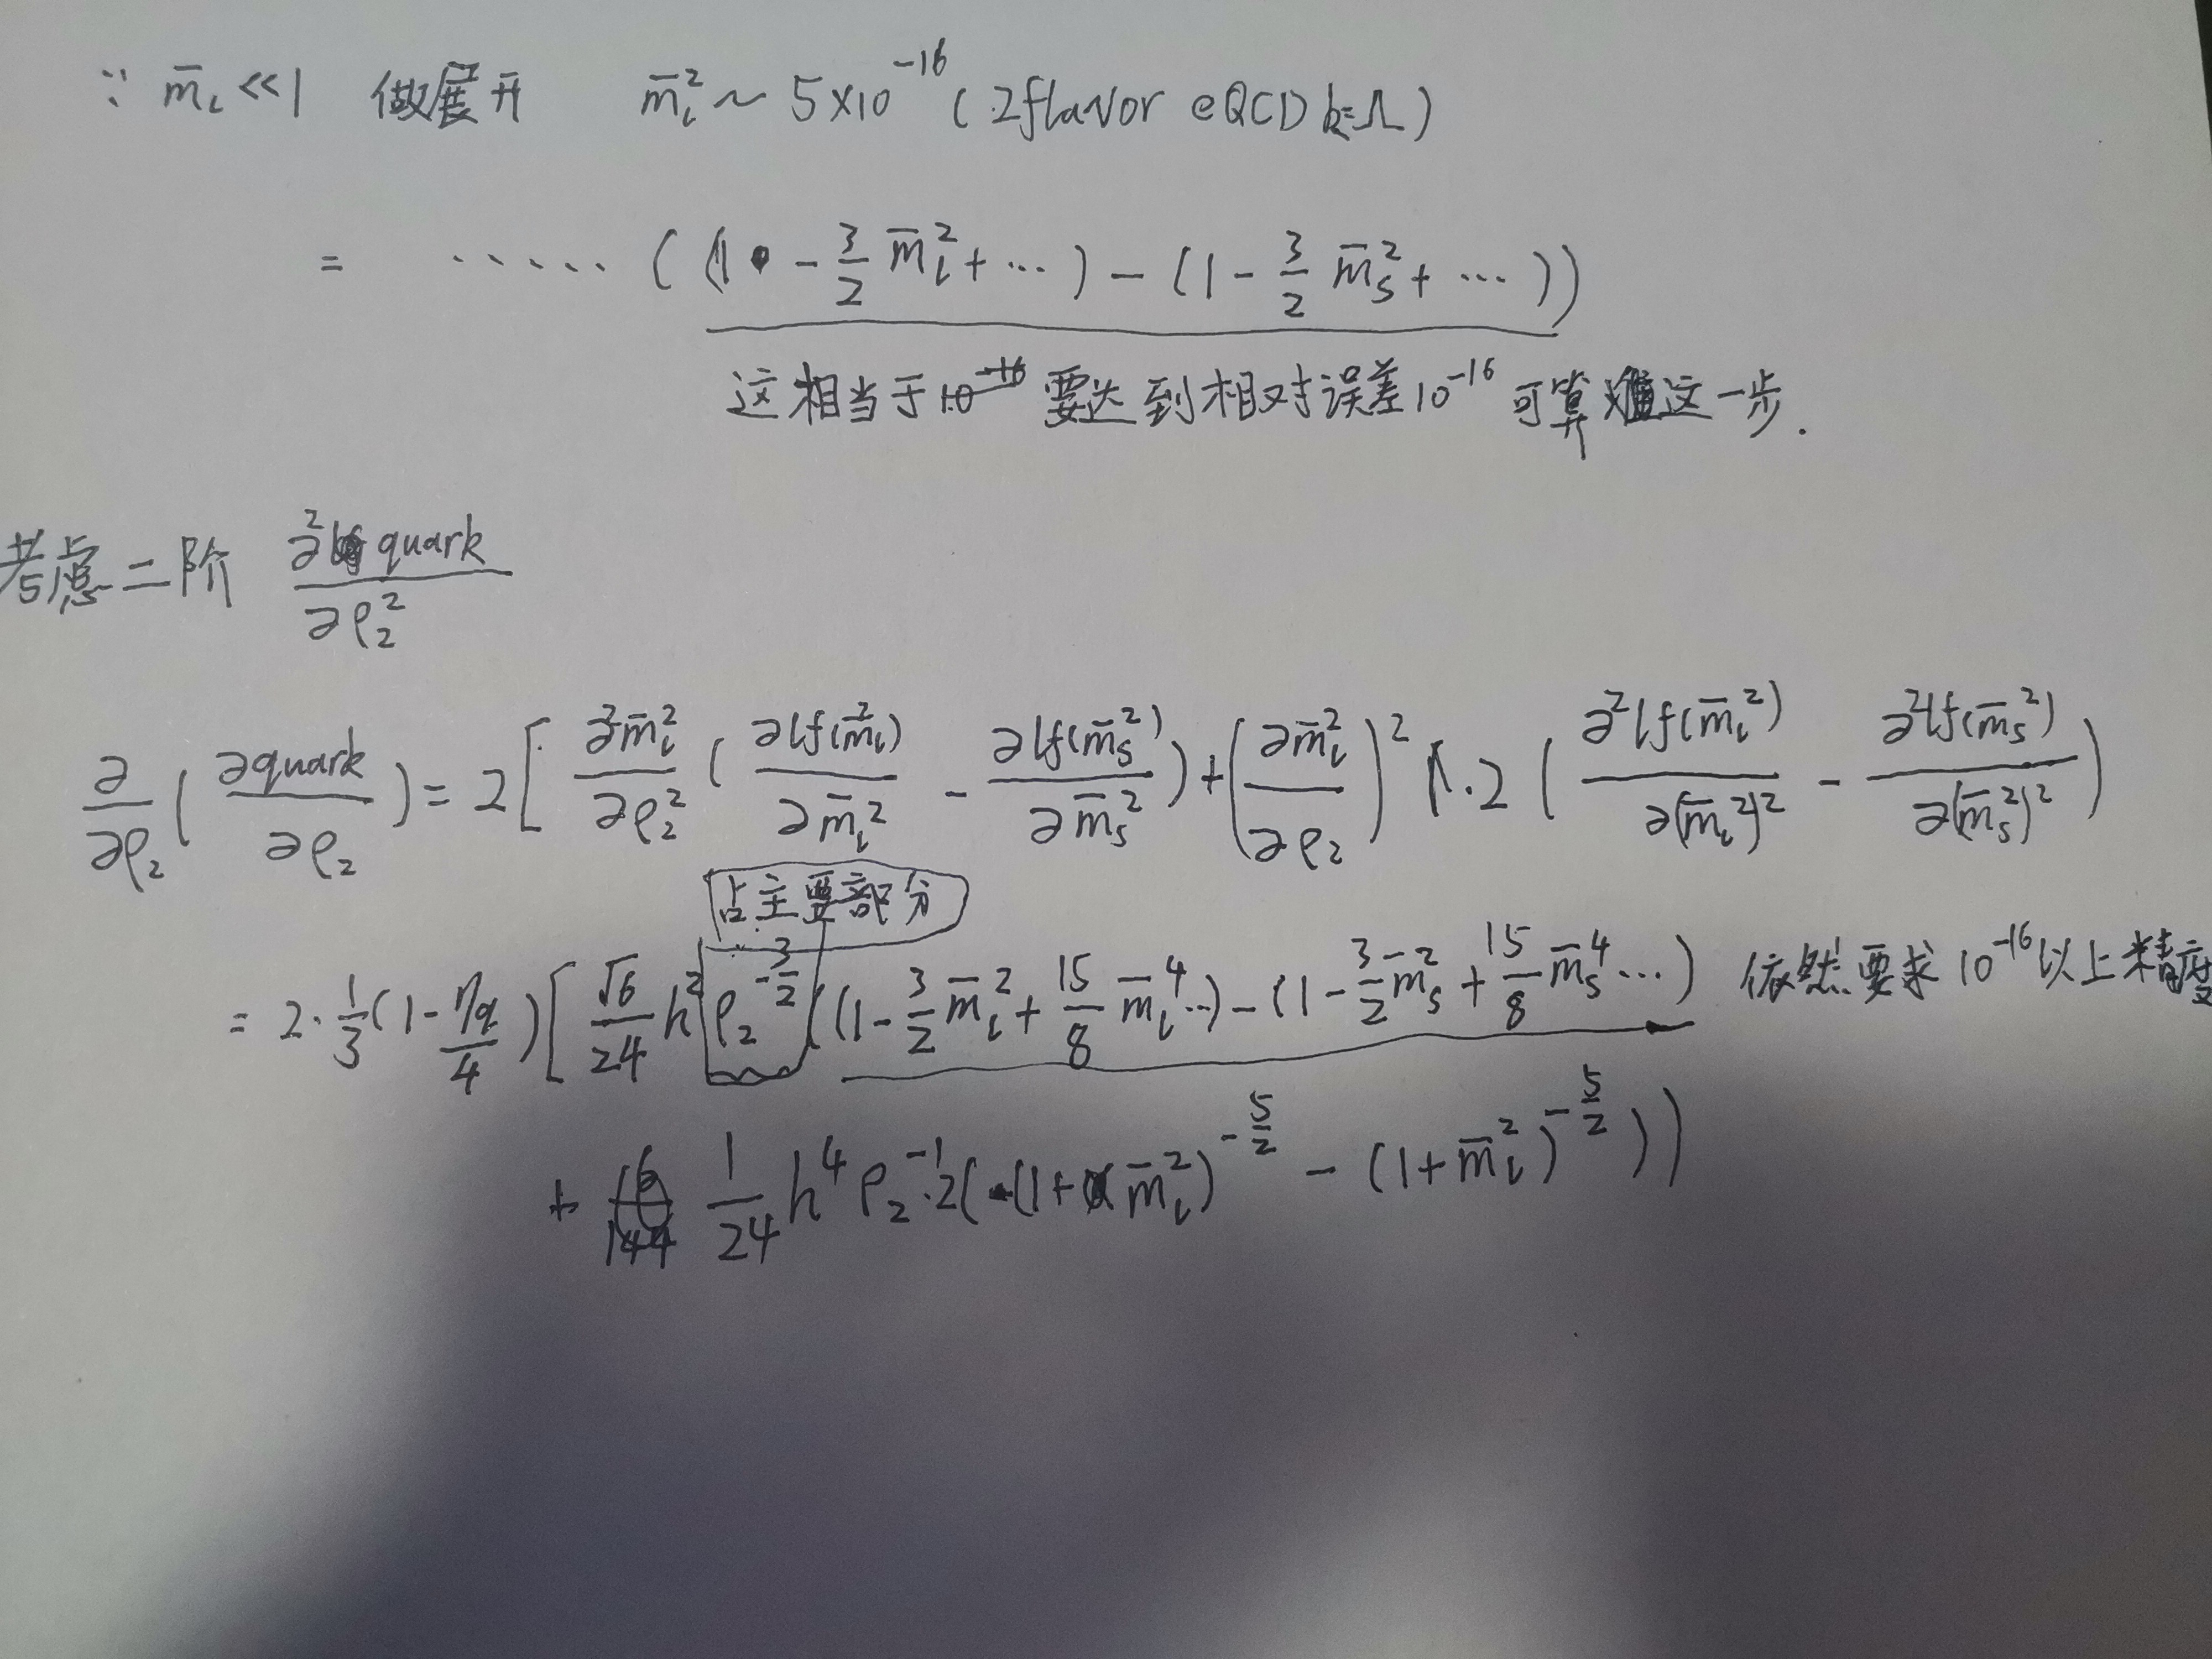 ∵ m̄_l ≪ 1 做展开 m̄_l² ~ 5×10⁻¹⁶ ( 2flavor eQCD k=Λ )
= ...... ( (1 - 3/2 m̄_l² + ⋯ ) - (1 - 3/2 m̄_s² + ⋯ ))
这相当于 要达到相对误差10⁻¹⁶ 可算 这一步.
考虑二阶 ∂² quark / ∂ρ₂²
∂/∂ρ₂ ( ∂quark/∂ρ₂ ) = 2[ ∂²m̄_l²/∂ρ₂² ( ∂lf(m̄_l²)/∂m̄_l² - ∂lf(m̄_s²)/∂m̄_s² ) + (∂m̄_l²/∂ρ₂)² ·2 ( ∂²lf(m̄_l²)/∂(m̄_l²)² - ∂²lf(m̄_s²)/∂(m̄_s²)² )
占主要部分
= 2·1/3 (1 - η_q/4) [ √6/24 h² ρ₂^(-3/2) ((1 - 3/2 m̄_l² + 15/8 m̄_l⁴ ⋯) - (1 - 3/2 m̄_s² + 15/8 m̄_s⁴ ⋯ ) 依然要求 10⁻¹⁶以上精度
+ 1/24 h⁴ ρ₂⁻¹·2( (1+ m̄_l²)^(-5/2) - (1+m̄_l²)^(-5/2) ))